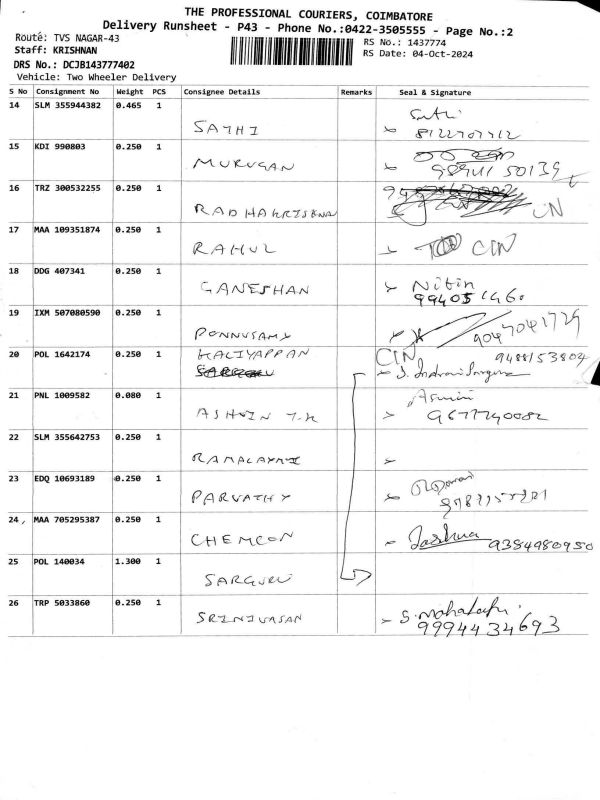 THE PROFESSIONAL COURIERS, COIMBATORE
Delivery Runsheet - P43 - Phone No.:0422-3505555 - Page No.:2
Route: TVS NAGAR-43
RS No.: 1437774
Staff: KRISHNAN
RS Date: 04-Oct-2024
DRS No.: DCJB143777402
Vehicle: Two Wheeler Delivery
S No Consignment No Weight PCS Consignee Details Remarks Seal & Signature
14 SLM 355944382 0.465 1
SATHI
15 KDI 990803 0.250 1
MURUGAN
16 TRZ 300532255 0.250 1
RADHAKRISHNAN
17 MAA 109351874 0.250 1
RAHUL CIN
18 DDG 407341 0.250 1
GANESHAN Nitin
19 IXM 507080590 0.250 1
PONNUSAMY 9047041729
20 POL 1642174 0.250 1 KALIYAPPAN CIN 9488153804
21 PNL 1009582 0.080 1
ASHWIN T.K 9677740082
22 SLM 355642753 0.250 1
23 EDQ 10693189 0.250 1
PARVATHY
24, MAA 705295387 0.250 1
CHEMCON Joshua 9384980950
25 POL 140034 1.300 1
26 TRP 5033860 0.250 1
SRINIVASAN
9994434693